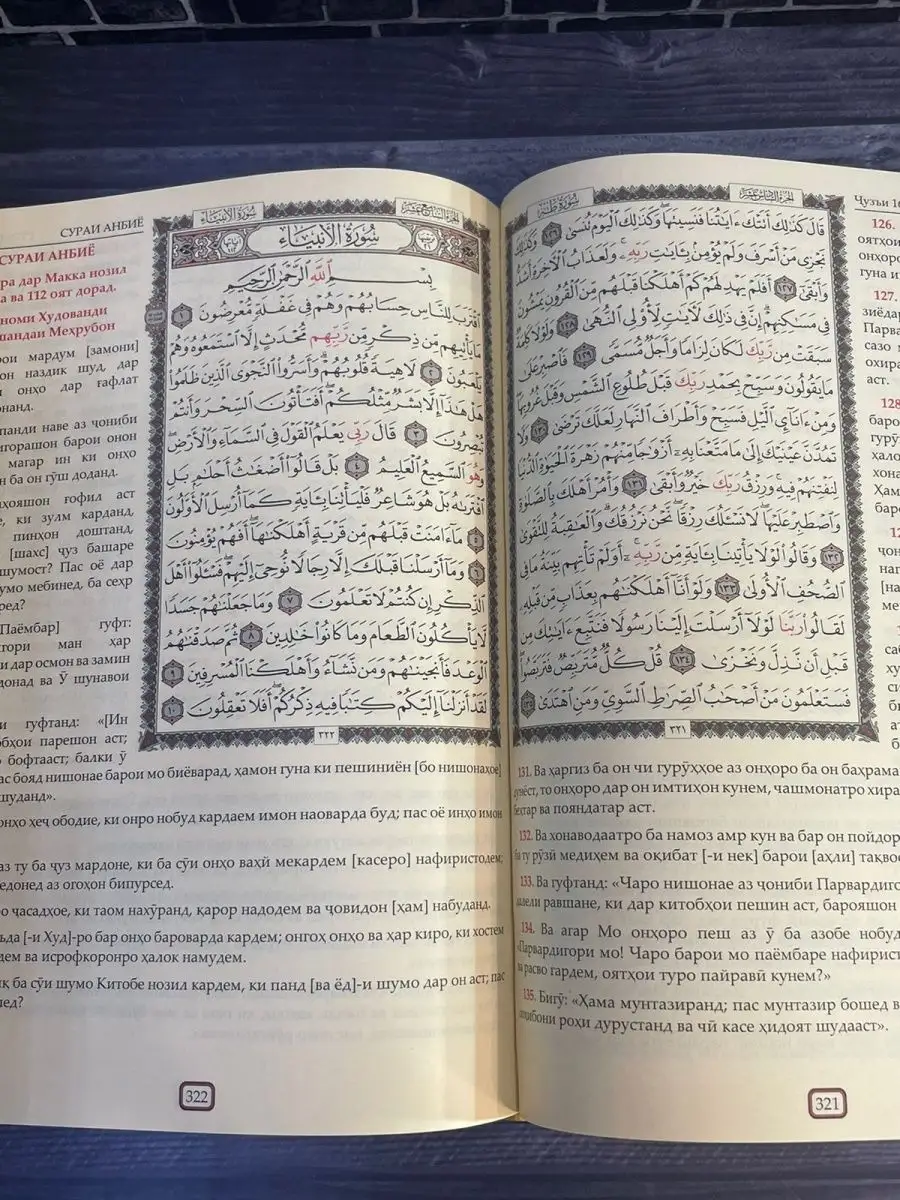 سُورَةُ طه
الجُزْءُ السَّادِسَ عَشَرَ
قَالَ كَذَٰلِكَ أَتَتْكَ ءَايَٰتُنَا فَنَسِيتَهَا ۖ وَكَذَٰلِكَ ٱلْيَوْمَ تُنسَىٰ ١٢٦ وَكَذَٰلِكَ
نَجْزِى مَنْ أَسْرَفَ وَلَمْ يُؤْمِنۢ بِـَٔايَٰتِ رَبِّهِۦ ۚ وَلَعَذَابُ ٱلْءَاخِرَةِ أَشَدُّ
وَأَبْقَىٰٓ ١٢٧ أَفَلَمْ يَهْدِ لَهُمْ كَمْ أَهْلَكْنَا قَبْلَهُم مِّنَ ٱلْقُرُونِ يَمْشُونَ
فِى مَسَٰكِنِهِمْ ۗ إِنَّ فِى ذَٰلِكَ لَءَايَٰتٍ لِّأُو۟لِى ٱلنُّهَىٰ ١٢٨ وَلَوْلَا كَلِمَةٌ
سَبَقَتْ مِن رَّبِّكَ لَكَانَ لِزَامًا وَأَجَلٌ مُّسَمًّى ١٢٩ فَٱصْبِرْ عَلَىٰ
مَا يَقُولُونَ وَسَبِّحْ بِحَمْدِ رَبِّكَ قَبْلَ طُلُوعِ ٱلشَّمْسِ وَقَبْلَ غُرُوبِهَا ۖ
وَمِنْ ءَانَآئِ ٱلَّيْلِ فَسَبِّحْ وَأَطْرَافَ ٱلنَّهَارِ لَعَلَّكَ تَرْضَىٰ ١٣٠ وَلَا
تَمُدَّنَّ عَيْنَيْكَ إِلَىٰ مَا مَتَّعْنَا بِهِۦٓ أَزْوَٰجًا مِّنْهُمْ زَهْرَةَ ٱلْحَيَوٰةِ ٱلدُّنْيَا
لِنَفْتِنَهُمْ فِيهِ ۚ وَرِزْقُ رَبِّكَ خَيْرٌ وَأَبْقَىٰ ١٣١ وَأْمُرْ أَهْلَكَ بِٱلصَّلَوٰةِ
وَٱصْطَبِرْ عَلَيْهَا ۖ لَا نَسْـَٔلُكَ رِزْقًا ۖ نَّحْنُ نَرْزُقُكَ ۗ وَٱلْعَٰقِبَةُ لِلتَّقْوَىٰ
١٣٢ وَقَالُوا۟ لَوْلَا يَأْتِينَا بِـَٔايَةٍ مِّن رَّبِّهِۦٓ ۚ أَوَلَمْ تَأْتِهِم بَيِّنَةُ مَا فِى
ٱلصُّحُفِ ٱلْأُولَىٰ ١٣٣ وَلَوْ أَنَّآ أَهْلَكْنَٰهُم بِعَذَابٍ مِّن قَبْلِهِۦ
لَقَالُوا۟ رَبَّنَا لَوْلَآ أَرْسَلْتَ إِلَيْنَا رَسُولًا فَنَتَّبِعَ ءَايَٰتِكَ مِن
قَبْلِ أَن نَّذِلَّ وَنَخْزَىٰ ١٣٤ قُلْ كُلٌّ مُّتَرَبِّصٌ فَتَرَبَّصُوا۟ ۖ
فَسَتَعْلَمُونَ مَنْ أَصْحَٰبُ ٱلصِّرَٰطِ ٱلسَّوِىِّ وَمَنِ ٱهْتَدَىٰ ١٣٥
٣٢١
Ҷузъи 1
126.
оятҳои
онҳоро
гуна и
127.
зиёдар
Парва
сазо м
охира
аст.
128
баро
гурӯ
ҳало
хона
Ҳам
баро
131. Ва ҳаргиз ба он чи гурӯҳҳое аз онҳоро ба он баҳрама
дунёст, то онҳоро дар он имтиҳон кунем, чашмонатро хира
беҳтар ва пояндатар аст.
132. Ва хонаводаатро ба намоз амр кун ва бар он пойдор
ба ту рӯзӣ медиҳем ва оқибат [-и нек] барои [аҳли] тақво
133. Ва гуфтанд: «Чаро нишонае аз ҷониби Парвардиг
далели равшане, ки дар китобҳои пешин аст, барояшон
134. Ва агар Мо онҳоро пеш аз ӯ ба азобе нобуд
«Парвардигори мо! Чаро барои мо паёмбаре нафирист
ва расво гардем, оятҳои туро пайравӣ кунем?»
135. Бигӯ: «Ҳама мунтазиранд; пас мунтазир бошед в
соҳибони роҳи дурустанд ва чӣ касе ҳидоят шудааст».
321
سُورَةُ الأَنبِيَاءِ
الجُزْءُ السَّابِعَ عَشَرَ
سُورَةُ الأَنبِيَاءِ
بِسْمِ ٱللَّهِ ٱلرَّحْمَٰنِ ٱلرَّحِيمِ
ٱقْتَرَبَ لِلنَّاسِ حِسَابُهُمْ وَهُمْ فِى غَفْلَةٍ مُّعْرِضُونَ ١
مَا يَأْتِيهِم مِّن ذِكْرٍ مِّن رَّبِّهِم مُّحْدَثٍ إِلَّا ٱسْتَمَعُوهُ وَهُمْ
يَلْعَبُونَ ٢ لَاهِيَةً قُلُوبُهُمْ ۗ وَأَسَرُّوا۟ ٱلنَّجْوَى ٱلَّذِينَ ظَلَمُوا۟
هَلْ هَٰذَآ إِلَّا بَشَرٌ مِّثْلُكُمْ ۖ أَفَتَأْتُونَ ٱلسِّحْرَ وَأَنتُمْ
تُبْصِرُونَ ٣ قَالَ رَبِّى يَعْلَمُ ٱلْقَوْلَ فِى ٱلسَّمَآءِ وَٱلْأَرْضِ ۖ
وَهُوَ ٱلسَّمِيعُ ٱلْعَلِيمُ ٤ بَلْ قَالُوٓا۟ أَضْغَٰثُ أَحْلَٰمٍۭ بَلِ
ٱفْتَرَىٰهُ بَلْ هُوَ شَاعِرٌ فَلْيَأْتِنَا بِـَٔايَةٍ كَمَآ أُرْسِلَ ٱلْأَوَّلُونَ
٥ مَآ ءَامَنَتْ قَبْلَهُم مِّن قَرْيَةٍ أَهْلَكْنَٰهَآ ۖ أَفَهُمْ يُؤْمِنُونَ
٦ وَمَآ أَرْسَلْنَا قَبْلَكَ إِلَّا رِجَالًا نُّوحِىٓ إِلَيْهِمْ ۖ فَسْـَٔلُوٓا۟ أَهْلَ
ٱلذِّكْرِ إِن كُنتُمْ لَا تَعْلَمُونَ ٧ وَمَا جَعَلْنَٰهُمْ جَسَدًا
لَّا يَأْكُلُونَ ٱلطَّعَامَ وَمَا كَانُوا۟ خَٰلِدِينَ ٨ ثُمَّ صَدَقْنَٰهُمُ
ٱلْوَعْدَ فَأَنجَيْنَٰهُمْ وَمَن نَّشَآءُ وَأَهْلَكْنَا ٱلْمُسْرِفِينَ ٩
لَقَدْ أَنزَلْنَآ إِلَيْكُمْ كِتَٰبًا فِيهِ ذِكْرُكُمْ ۖ أَفَلَا تَعْقِلُونَ ١٠
٣٢٢
СУРАИ АНБИЁ
СУРАИ АНБИЁ
ра дар Макка нозил
а ва 112 оят дорад.
номи Худованди
шандаи Меҳрубон
рои мардум [замони]
он наздик шуд, дар
онҳо дар ғафлат
онанд.
панди наве аз ҷониби
игорашон барои онон
магар ин ки онҳо
н ба он гӯш доданд.
ҳояшон ғофил аст
е, ки зулм карданд,
пинҳон доштанд,
[шахс] ҷуз башаре
шумост? Пас оё дар
умо мебинед, ба сеҳр
ред?
Паёмбар] гуфт:
тори ман ҳар
и дар осмон ва замин
донад ва Ӯ шунавои
и гуфтанд: «[Ин
обҳои парешон аст;
о бофтааст; балки ӯ
ас бояд нишонае барои мо биёварад, ҳамон гуна ки пешиниён [бо нишонаҳое]
шуданд».
онҳо ҳеҷ ободие, ки онро нобуд кардаем имон наоварда буд; пас оё инҳо имон
аз ту ба ҷуз мардоне, ки ба сӯи онҳо ваҳй мекардем [касеро] нафиристодем;
едонед аз огоҳон бипурсед.
о ҷасадҳое, ки таом нахӯранд, қарор надодем ва ҷовидон [ҳам] набуданд.
ъда [-и Худ]-ро бар онҳо бароварда кардем; онгоҳ онҳо ва ҳар киро, ки хостем
дем ва исрофкоронро ҳалок намудем.
қ ба сӯи шумо Китобе нозил кардем, ки панд [ва ёд]-и шумо дар он аст; пас
лед?
322